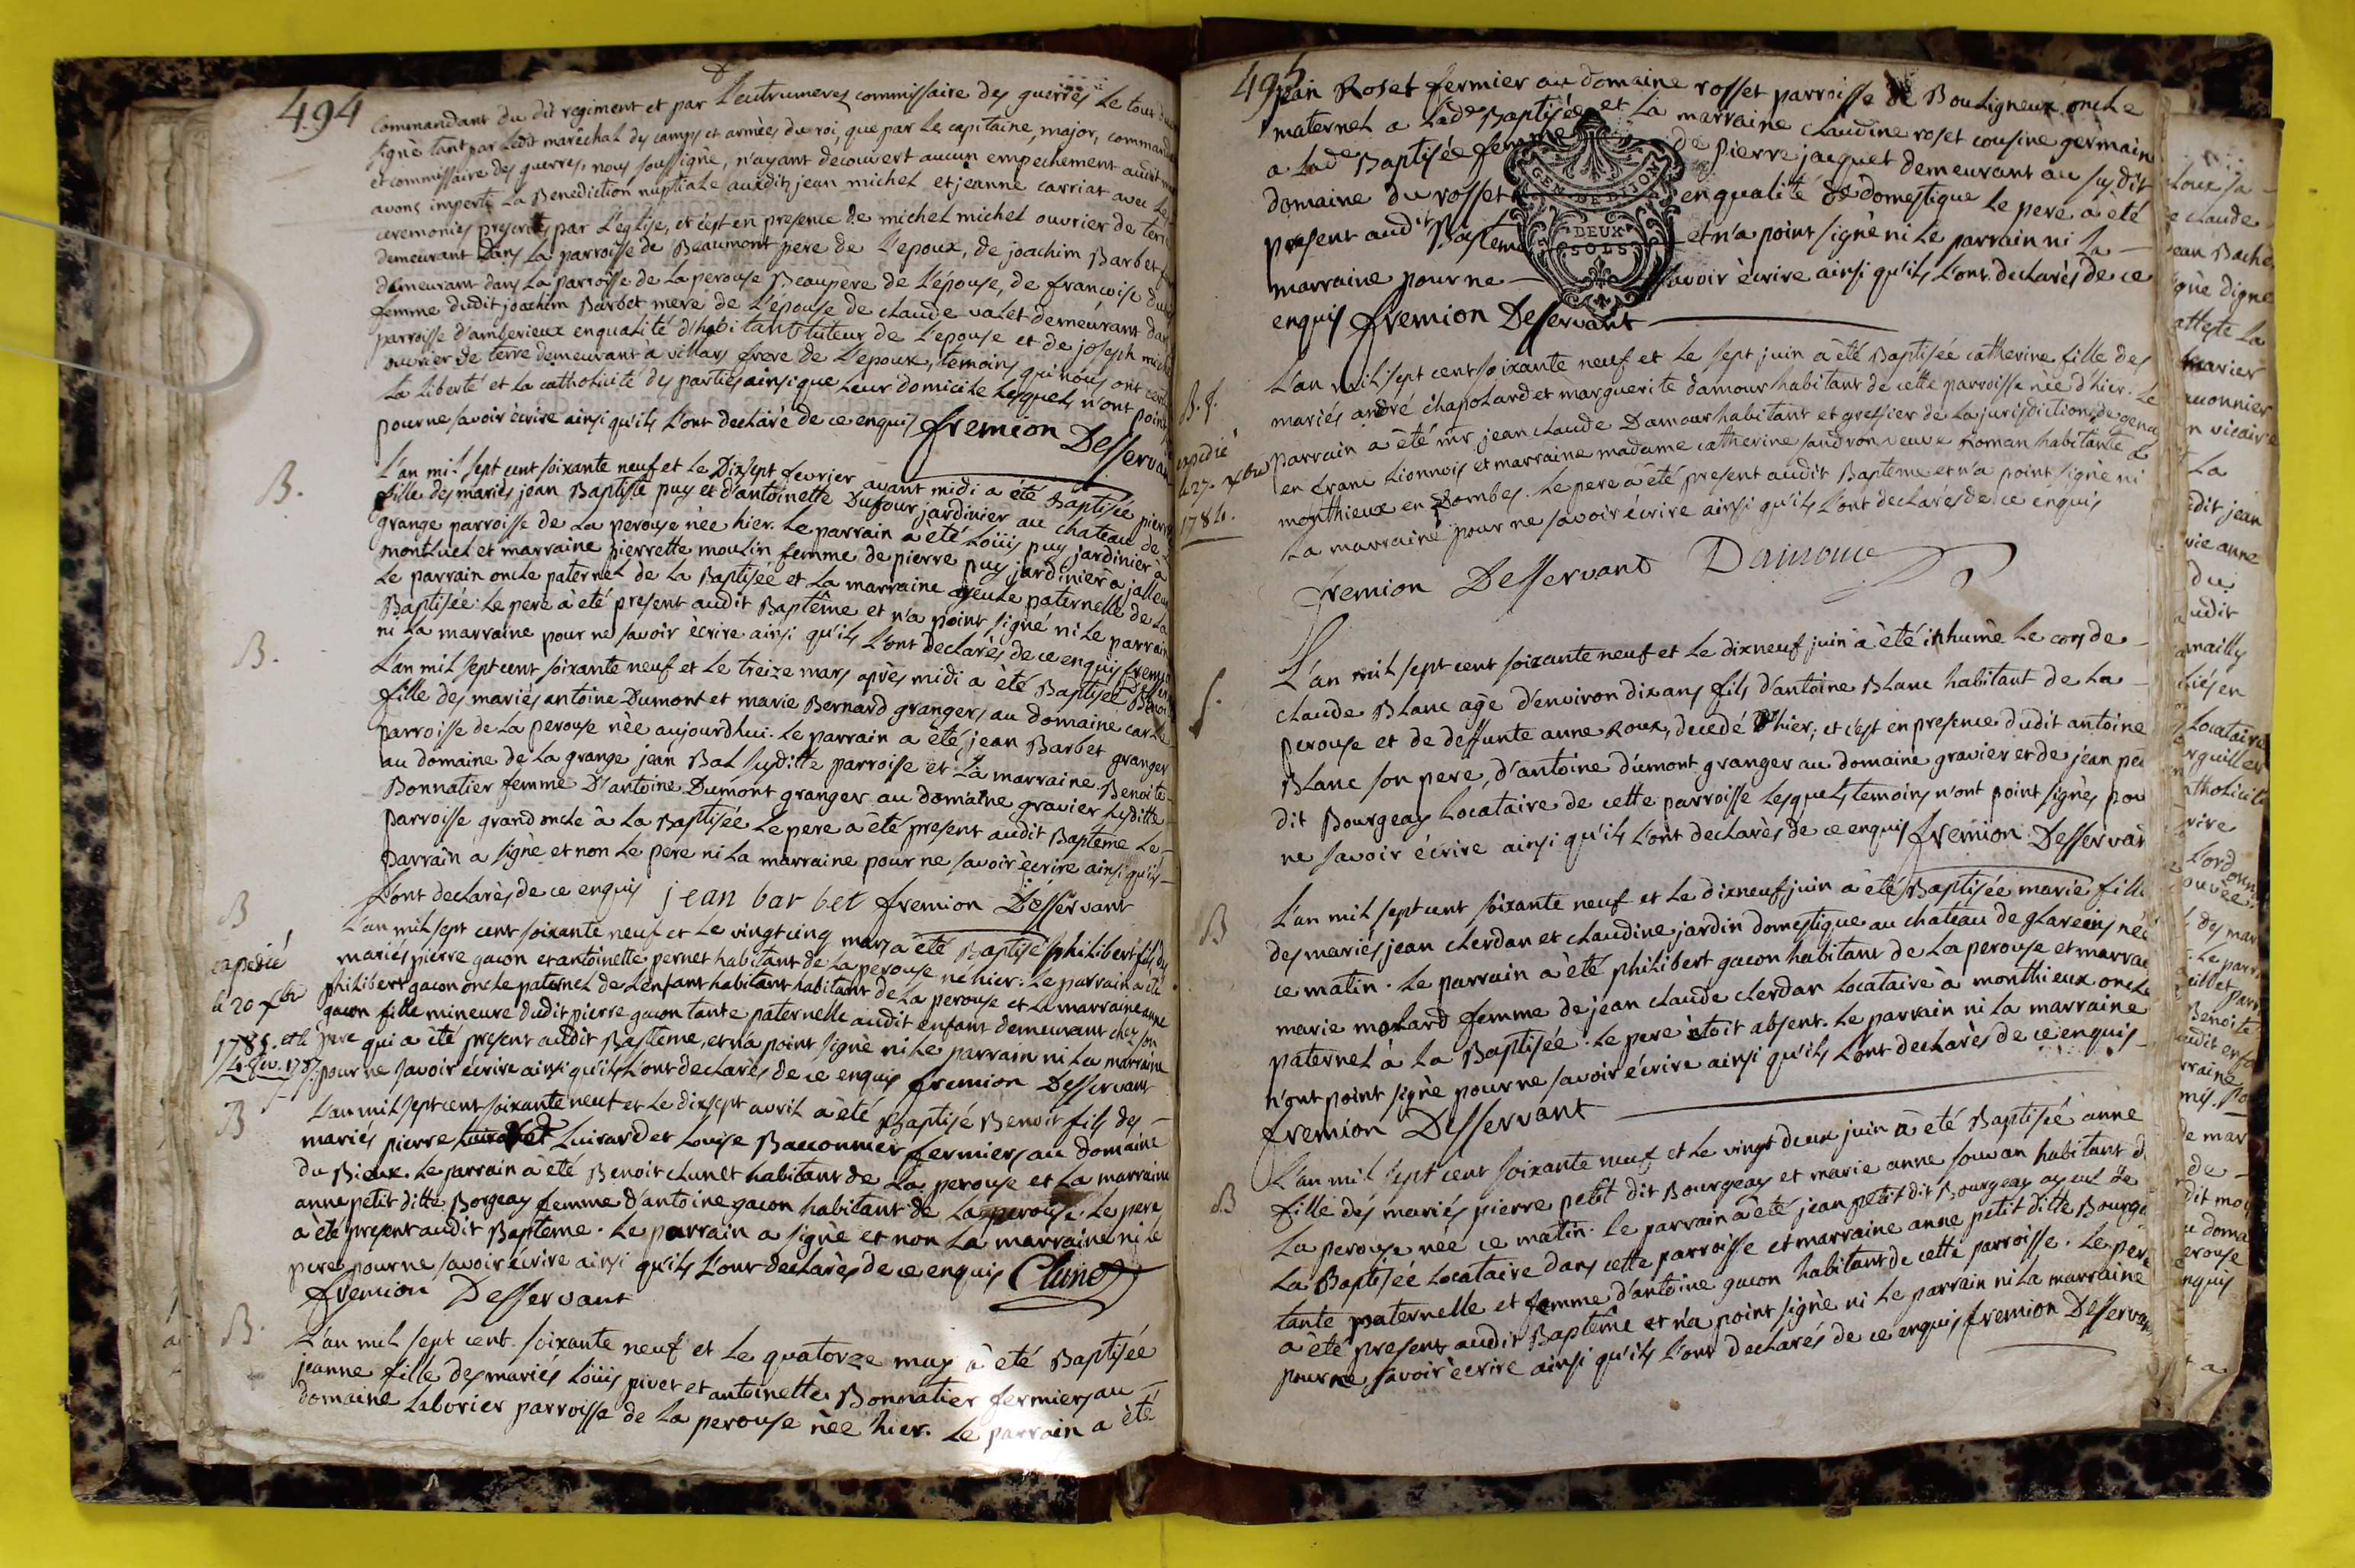 494
commandant du dit regiment et par L'eutrumeres commissaire des guerres Le tout
signé tant par Ledit maréchal des camps et armées du roi, que par Le capitaine, major, command
et commissaire des guerres, nous soussigné, n'ayant decouvert aucun empechement audit
avons imperti La Benediction nuptiale auxdits jean michel et jeanne carriat avec Les
ceremonies prescrites par L'eglise, et c'est en presence de michel michel ouvrier de terre
demeurant dans La parroisse de Beaumont pere de L'epoux, de joachim Barbet
demeurant dans La parroisse de La perouse Beaupere de L'épouse, de françoise
femme dudit joachim Barbet mere de L'épouse de claude valet demeurant dans
parroisse d'amberieux en qualité d'habitant tuteur de L'epouse et de joseph michel
ouvrier de terre demeurant à villars frere de L'epoux, temoins qui nous ont
La liberté et La catholicité des parties ainsi que Leur domicile Lesquels n'ont point
pour ne savoir écrire ainsi qu'ils L'ont declaré de ce enquis fremion Desservant
B.
L'an mil sept cent soixante neuf et Le Dixsept fevrier avant midi a été Baptisée pierre
fille des mariés jean Baptiste puy et d'antoinette Dufour jardinier au chateau de
grange parroisse de La perouse née hier. Le parrain a été Loüis puy jardinier à
montluel et marraine pierrette moulin femme de pierre puy jardinier à
Le parrain oncle paternel de La Baptisée et La marraine ayeule paternelle de La
Baptisée. Le pere à été present audit Baptême et n'a point signé ni Le parrain
ni La marraine pour ne savoir écrire ainsi qu'ils L'ont declarés de ce enquis fremion
B.
L'an mil sept cent soixante neuf et Le treize mars après midi à été Baptisée Benoite
fille des mariés antoine Dumont et marie Bernard grangers au domaine carle
parroisse de La perouse née aujourdhui. Le parrain a été jean Barbet granger
au domaine de La grange jean Bal susditte parroisse et La marraine Benoite
Bonnatier femme D'antoine Dumont granger au domaine gravier susditte
parroisse grand oncle à La Baptisée Le pere à été present audit Baptême Le
parrain a signé et non Le pere ni La marraine pour ne savoir écrire ainsi qu'ils
L'ont declarés de ce enquis jean bar bet fremion Desservant
B
L'an mil sept cent soixante neuf et Le vingt cinq mars à été Baptisé philibert fils des
expedié
mariés pierre gacon et antoinette pernet habitant de La perouse né hier. Le parrain a été
le 20 xbre
philibert gacon oncle paternel de L'enfant habitant habitant de La perouse et La marraine anne
gacon fille mineure dudit pierre gacon tante paternelle audit enfant demeurant chez son
1785. et le
pere qui a été present audit Baptême, et n'a point signé ni Le parrain ni La marraine
pour ne savoir écrire ainsi qu'ils L'ont declarés de ce enquis fremion Desservant
B
L'an mil sept cent soixante neuf et Le dixsept avril à été Baptisé Benoit fils des
mariés pierre Luirard et Louise Baconnier fermiers au domaine
du Bieux. Le parrain à été Benoit clunet habitant de La perouse et La marraine
anne petit ditte Borgeay femme d'antoine gacon habitant de La perouse. Le pere
à été present audit Baptême. Le parrain a signé et non La marraine ni Le
pere pour ne savoir écrire ainsi qu'ils L'ont declarés de ce enquis Clunet
fremion Desservant
B.
L'an mil sept cent soixante neuf et Le quatorze may à été Baptisée
jeanne fille des mariés Loüis pivet et antoinette Bonnatier fermiers au
domaine Laborier parroisse de La perouse née hier. Le parrain a été
495
jean Roset fermier au domaine rosset parroisse de Bouligneux oncle
maternel a Lade Baptisée et La marraine claudine roset cousine germaine
a Lade Baptisée femme de pierre jacquet demeurant au susdit
domaine du rosset en qualité de domestique Le pere à été
present audit Baptême et n'a point signé ni Le parrain ni La
marraine pour ne savoir écrire ainsi qu'ils L'ont declarés de ce
enquis fremion Desservant
GEN DE DIJON
DEUX
SOLS
L'an mil sept cent soixante neuf et Le sept juin à été Baptisée catherine fille des
B.
mariés andré chapolard et marguerite damour habitant de cette parroisse née d'hier. Le
expedié
parrain à été mr jean claude Damour habitant et greffier de La jurisdiction de
le 27. xbre
en franc Lionnois et marraine madame catherine sandron veuve Roman habitante de
1784.
monthieux en Dombes. Le pere à été present audit Baptême et n'a point signé ni
La marraine pour ne savoir écrire ainsi qu'ils L'ont declarés de ce enquis
fremion Desservant Damour
S.
L'an mil sept cent soixante neuf et Le dixneuf juin à été inhumé Le corps de
claude Blanc agé d'environ dix ans fils d'antoine Blanc habitant de La
perouse et de deffunte anne Roux, decedé d'hier; et c'est en presence dudit antoine
Blanc son pere, d'antoine dumont granger au domaine gravier et de jean
dit Bourgeay Locataire de cette parroisse Lesquels temoins n'ont point signés pour
ne savoir écrire ainsi qu'ils L'ont declarés de ce enquis fremion Desservant
B
L'an mil sept cent soixante neuf et Le dixneuf juin à été Baptisée marie fille
des mariés jean cherdan et claudine jardin domestique au chateau de glareins née
ce matin. Le parrain à été philibert gacon habitant de La perouse et marraine
marie molard femme de jean claude cherdan Locataire à monthieux oncle
paternel à La Baptisée. Le pere étoit absent. Le parrain ni La marraine
n'ont point signé pour ne savoir écrire ainsi qu'ils L'ont declarés de ce enquis
fremion Desservant
B
L'an mil sept cent soixante neuf et Le vingt deux juin à été Baptisée anne
fille des mariés pierre petit dit Bourgeay et marie anne souvan habitant de
La perouse née ce matin. Le parrain à été jean petit dit Bourgeay ayeul de
La Baptisée Locataire dans cette parroisse et marraine anne petit ditte Bourge
tante paternelle et femme d'antoine gacon habitant de cette parroisse. Le pere
à été present audit Baptême et n'a point signé ni Le parrain ni La marraine
pour ne savoir écrire ainsi qu'ils L'ont declarés de ce enquis fremion Desservant